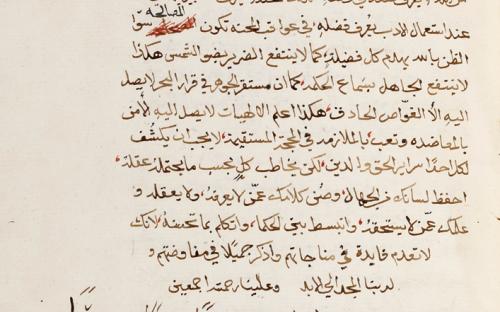 المصالحة
عند استعمال الادب يعرف فضيله وفي عواقب المحنة تكون سوا
الظن بالله يهدم كل فضيله كما لا ينتفع الضرير بضو الشمس هكذا
لا ينتفع الجاهل بسماع الحكمه كما ان مستقر الجوهر في قرار البحر لا يصل
اليه الا الغواص الحاذق هكذا اعلم الالهيات لا يصل اليه الا من
بالمعاضده وتعب بالملازمه في المستقيمة لا يجب ان يكشف
لكل احد سراير الحق والدين لكن يخاطب كل بحسب ما يحتمله عقله
احفظ لسانك في الجهال وصن كلامك عمن لا يعرفه ولا يعقله و
علمك عمن لا يستحقه وانبسط بين الحكما واتكلم بما تحسنه لانك
لا تعدم فايدة في مناجاتهم واذكر جميلا في مفاوضتهم و
لربنا المجد الي الابد وعلينا رحمته اجمعين